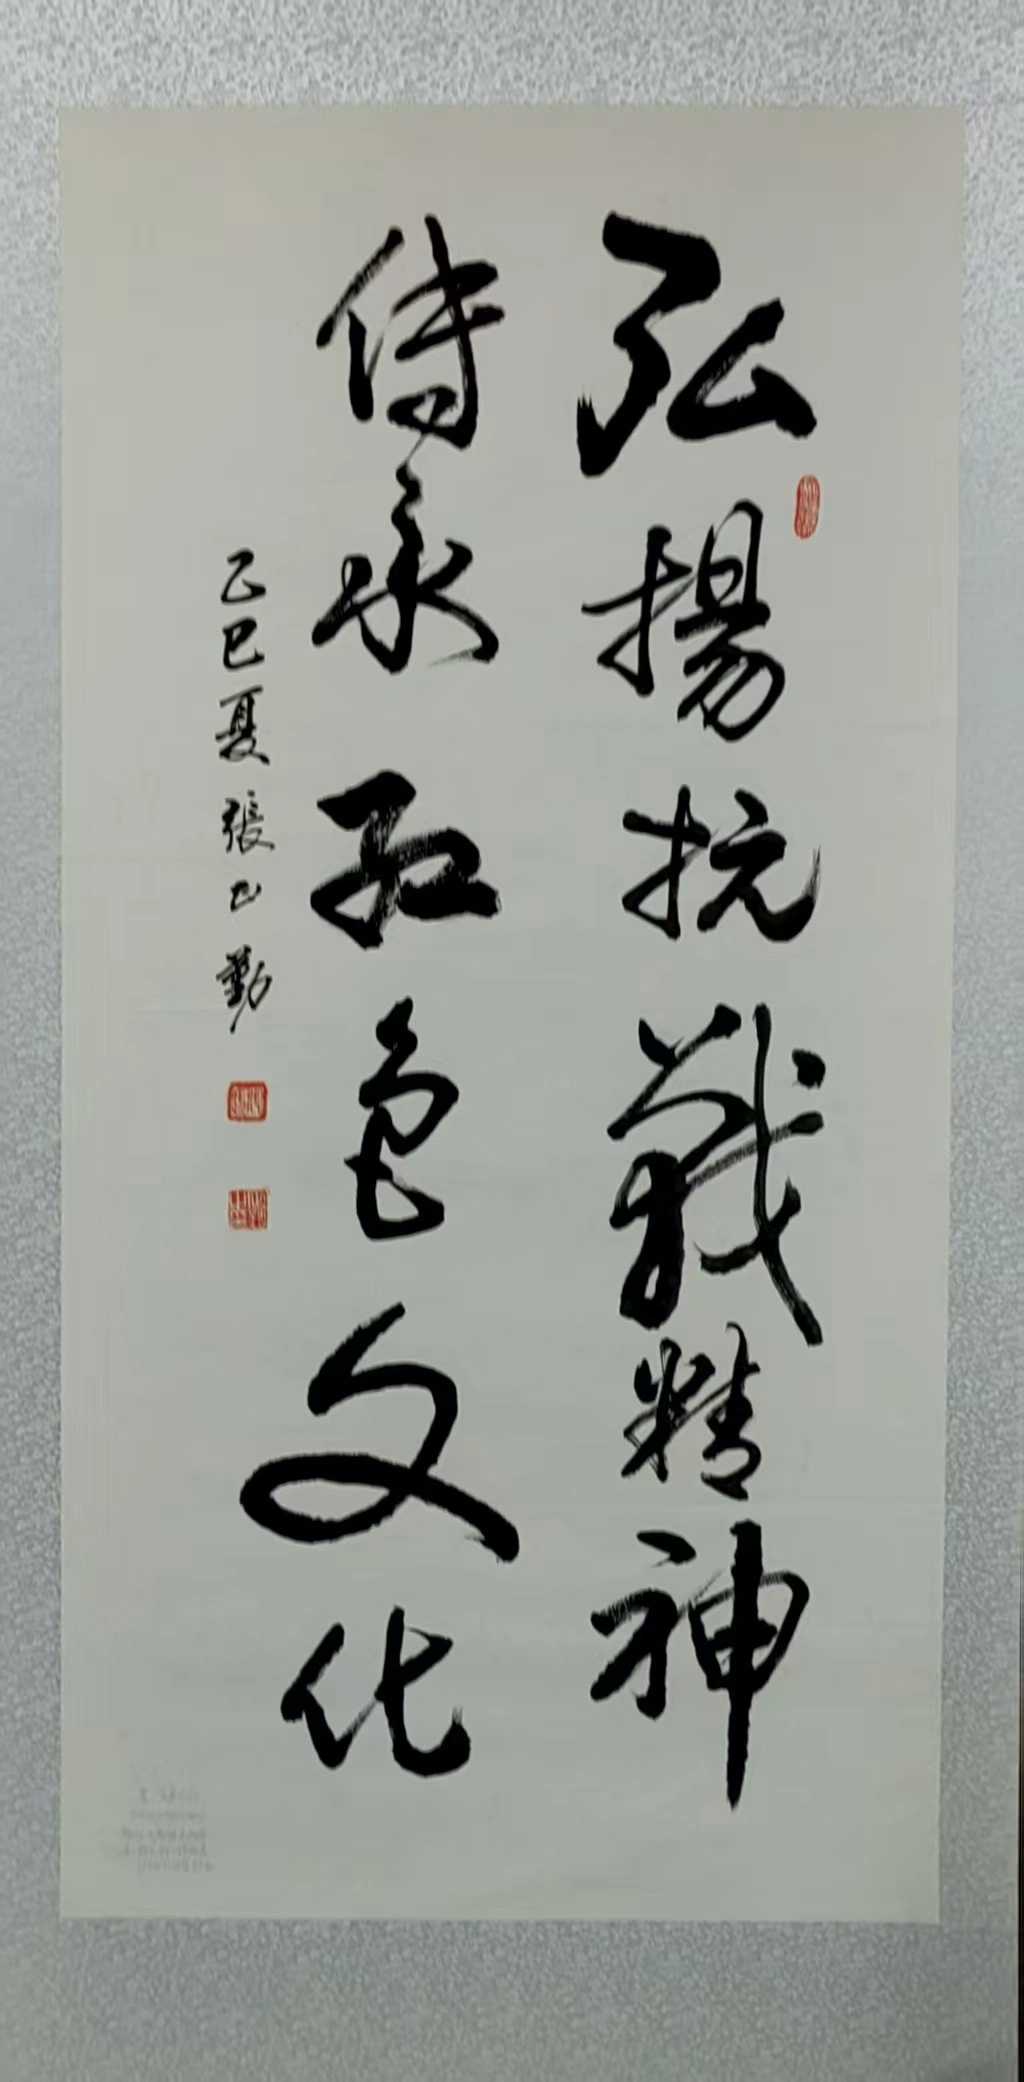 弘揚抗戰精神
傳承紅色文化
乙巳夏張 勤